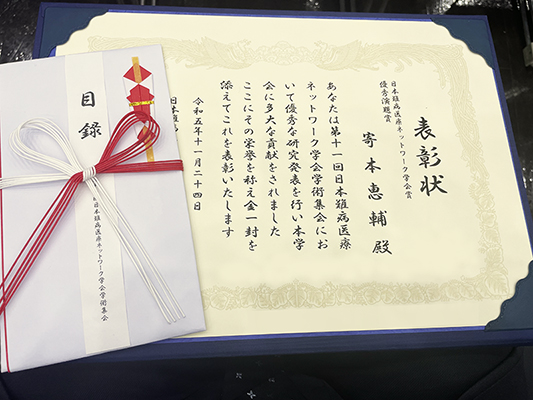 表彰状
日本難病医療ネットワーク学会賞
優秀演題賞
寄本恵輔 殿
あなたは第十一回日本難病医療
ネットワーク学会学術集会にお
いて優秀な研究発表を行い本学
会に多大な貢献をされました
ここにその栄誉を称え金一封を
添えてこれを表彰いたします
令和五年十一月二十四日
日本難病
目録
日本難病医療ネットワーク学会学術集会